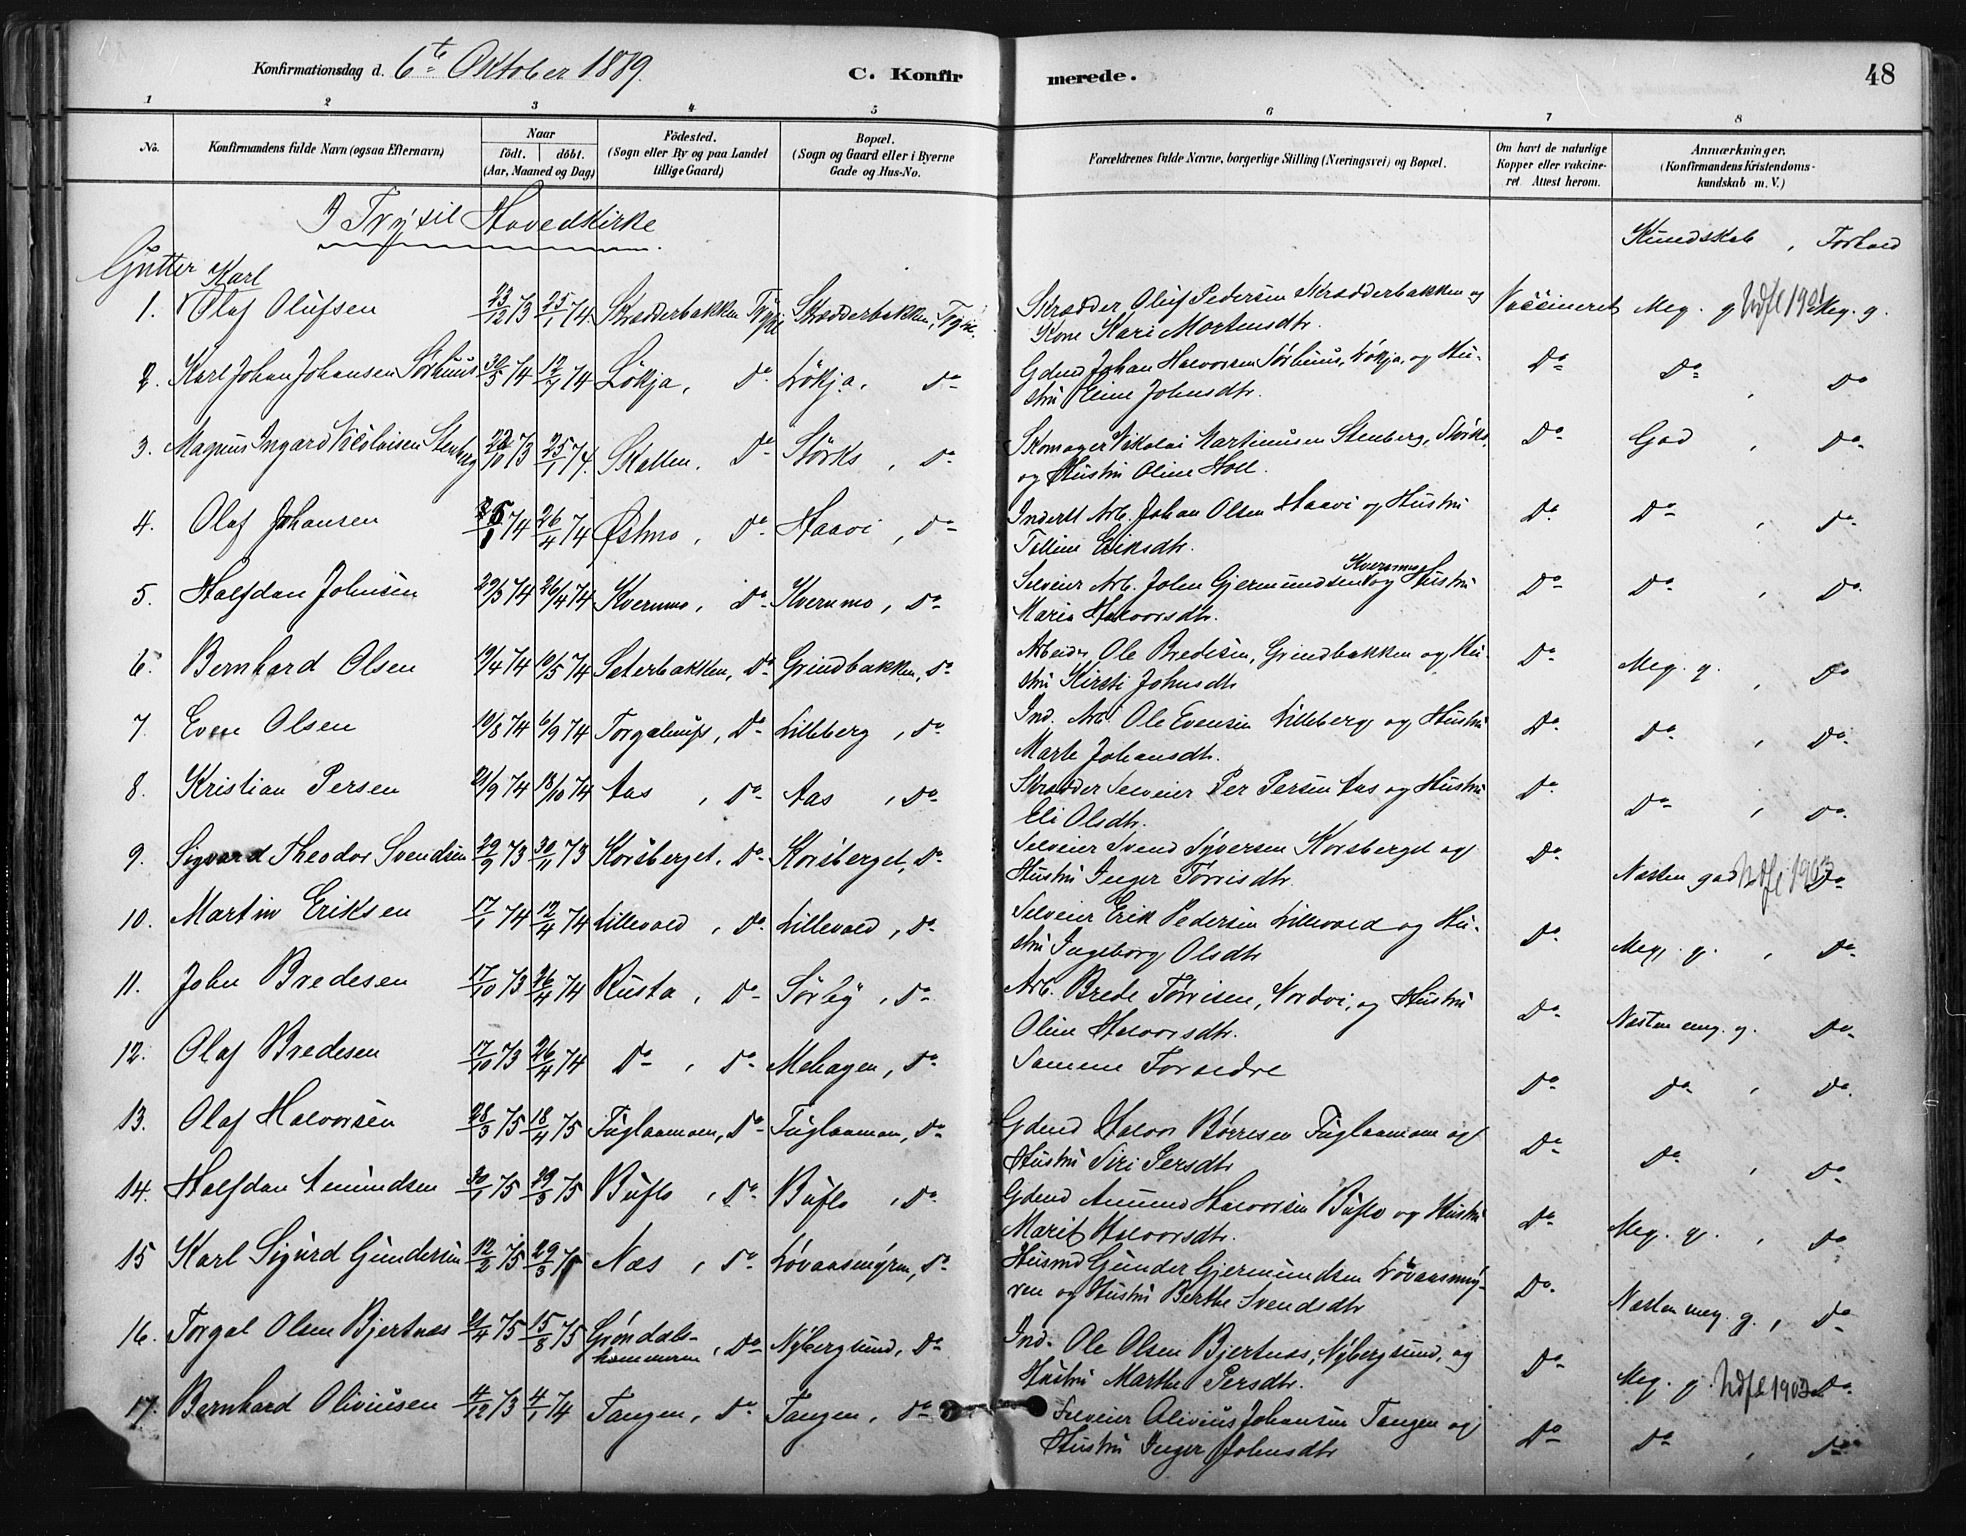 Konfirmationsdag d. 6te Oktober 1889.
C. Konfirmerede.
48
1 2 3 4 5 6 7 8
No.
Konfirmandens fulde Navn (ogsaa Efternavn)
Naar
født. | døbt.
(Aar, Maaned og Dag)
Fødested.
(Sogn eller By og paa Landet
tillige Gaard)
Bopæl.
(Sogn og Gaard eller i Byerne
Gade og Hus-No.
Forældrenes fulde Navne, borgerlige Stilling (Næringsvei) og Bopæl.
Om havt de naturlige
Kopper eller vakcine-
ret. Attest herom.
Anmærkninger.
(Konfirmandens Kristendoms-
kundskab m. V.)
I Trysil Hovedkirke
Kundskab, Forhold
Gutter
Karl
1. Olaf Olufsen 23/12 73 25/1 74 Skrædderbakken Trysil Skrædderbakken, Trysil Skrædder Oluf Pedersen Skrædderbakken og Vaccineret Meg. g. Udfl 190 Meg. g.
Kone Kari Mortensdtr.
2. Karl Johan Johansen Sørhuus 30/5 74 12/7 74 Løkja, Do Løkja, Do Gdmd Johan Halvorsen Sørhuus, Løkja, og Hu- Do Do , Do
stru Eline Johnsdtr.
3. Magnus Ingard Nicolaisen Stenberg 22/10 73 25/1 74. Skallen, Do Størks, Do Skomager Nikolai Martinusen Stenberg, Størks, Do God , Do
og Hustru Oline Holl.
4. Olaf Johansen 74 26/4 74 Østmo, Do Haavi, Do Inderst Arb. Johan Olsen Haavi og Hustru Do Do , Do
Eriksdtr.
5. Halfdan Johnsen 29/3 74 26/4 74 Kvernmo, Do Kvernmo, Do Selveier Arb. John Gjermundsen Kvernmo og Hustru Do Do , Do
Maria Halvorsdtr.
6. Bernhard Olsen 9/4 74 10/5 74 Seterbakken, Do Grindbakken, Do Arbeider Ole Bredesen, Grindbakken og Hu- Do Meg. g. , Do
stru Kirsti Johnsdtr
7. Even Olsen 10/8 74 6/9 74 Do Lilleberg, Do Ind. Arb Ole Evensen Lilleberg og Hustru Do Do , Do
Marte Johansdtr.
8. Kristian Persen 21/9 74 18/10 74 Aas, Do Aas, Do Skrædder Selveier Per Persen Aas og Hustru Do Do , Do
Eli Olsdtr.
9. Sigvard Theodor Svendsen 29/9 73 30/11 73 Korsberget, Do Korsberget, Do Selveier Svend Syversen Korsberget og Do Næsten god Udfl 190 Do
Hustru Inger Tørrisdtr.
10. Martin Eriksen 17/1 74 12/4 74 Lillevold, Do Lillevold, Do Selveier Erik Pedersen Lillevold og Hu- Do Meg. g. , Do
stru Ingeborg Olsdtr
11. John Bredesen 17/10 73 26/4 74 Rusta, Do Sørby, Do Arb. Brede Tørrisen, Nordvi, og Hustru Do Næsten meg. g. Do
Oline Halvorsdtr.
12. Olaf Bredesen 17/10 73 26/4 74 Do, Do Mohagen, Do Samme Forældre Do Do , Do
13. Olaf Halvorsen 28/3 75 18/4 75 Fuglaamoen, Do Fuglaamoen, Do Gdmd Halvor Børresen Fuglaamoen og Do Do , Do
Hustru Siri Persdtr
14. Halfdan Amundsen 30/1 75 29/3 75 Buflo, Do Buflo, Do Gdmd Amund Halvorsen Buflo og Hustru Do Meg. g. , Do
Marit Halvorsdtr.
15 Karl Sigurd Gundersen 12/2 75 29/3 75 Næs, Do Løvaasmyren, Do Husmd Gunder Gjermundsen Løvaasmy- Do Næsten meg. g., Do
ren og Hustru Berthe Svendsdtr
16. Torgal Olsen Bjertnæs 21/4 75 15/8 75 Grøndals-
hammeren, Do Nybergsund, Do Ind. Ole Olsen Bjertnæs, Nybergsund, og Do Meg. g. Udfl 1902 Do
Hustru Marthe Persdtr.
17. Bernhard Oliviusen 4/12 73 4/1 74 Tangen, Do Tangen, Do Selveier Olivius Johansen Tangen og Do Do , Do
Hustru Inger Johnsdtr